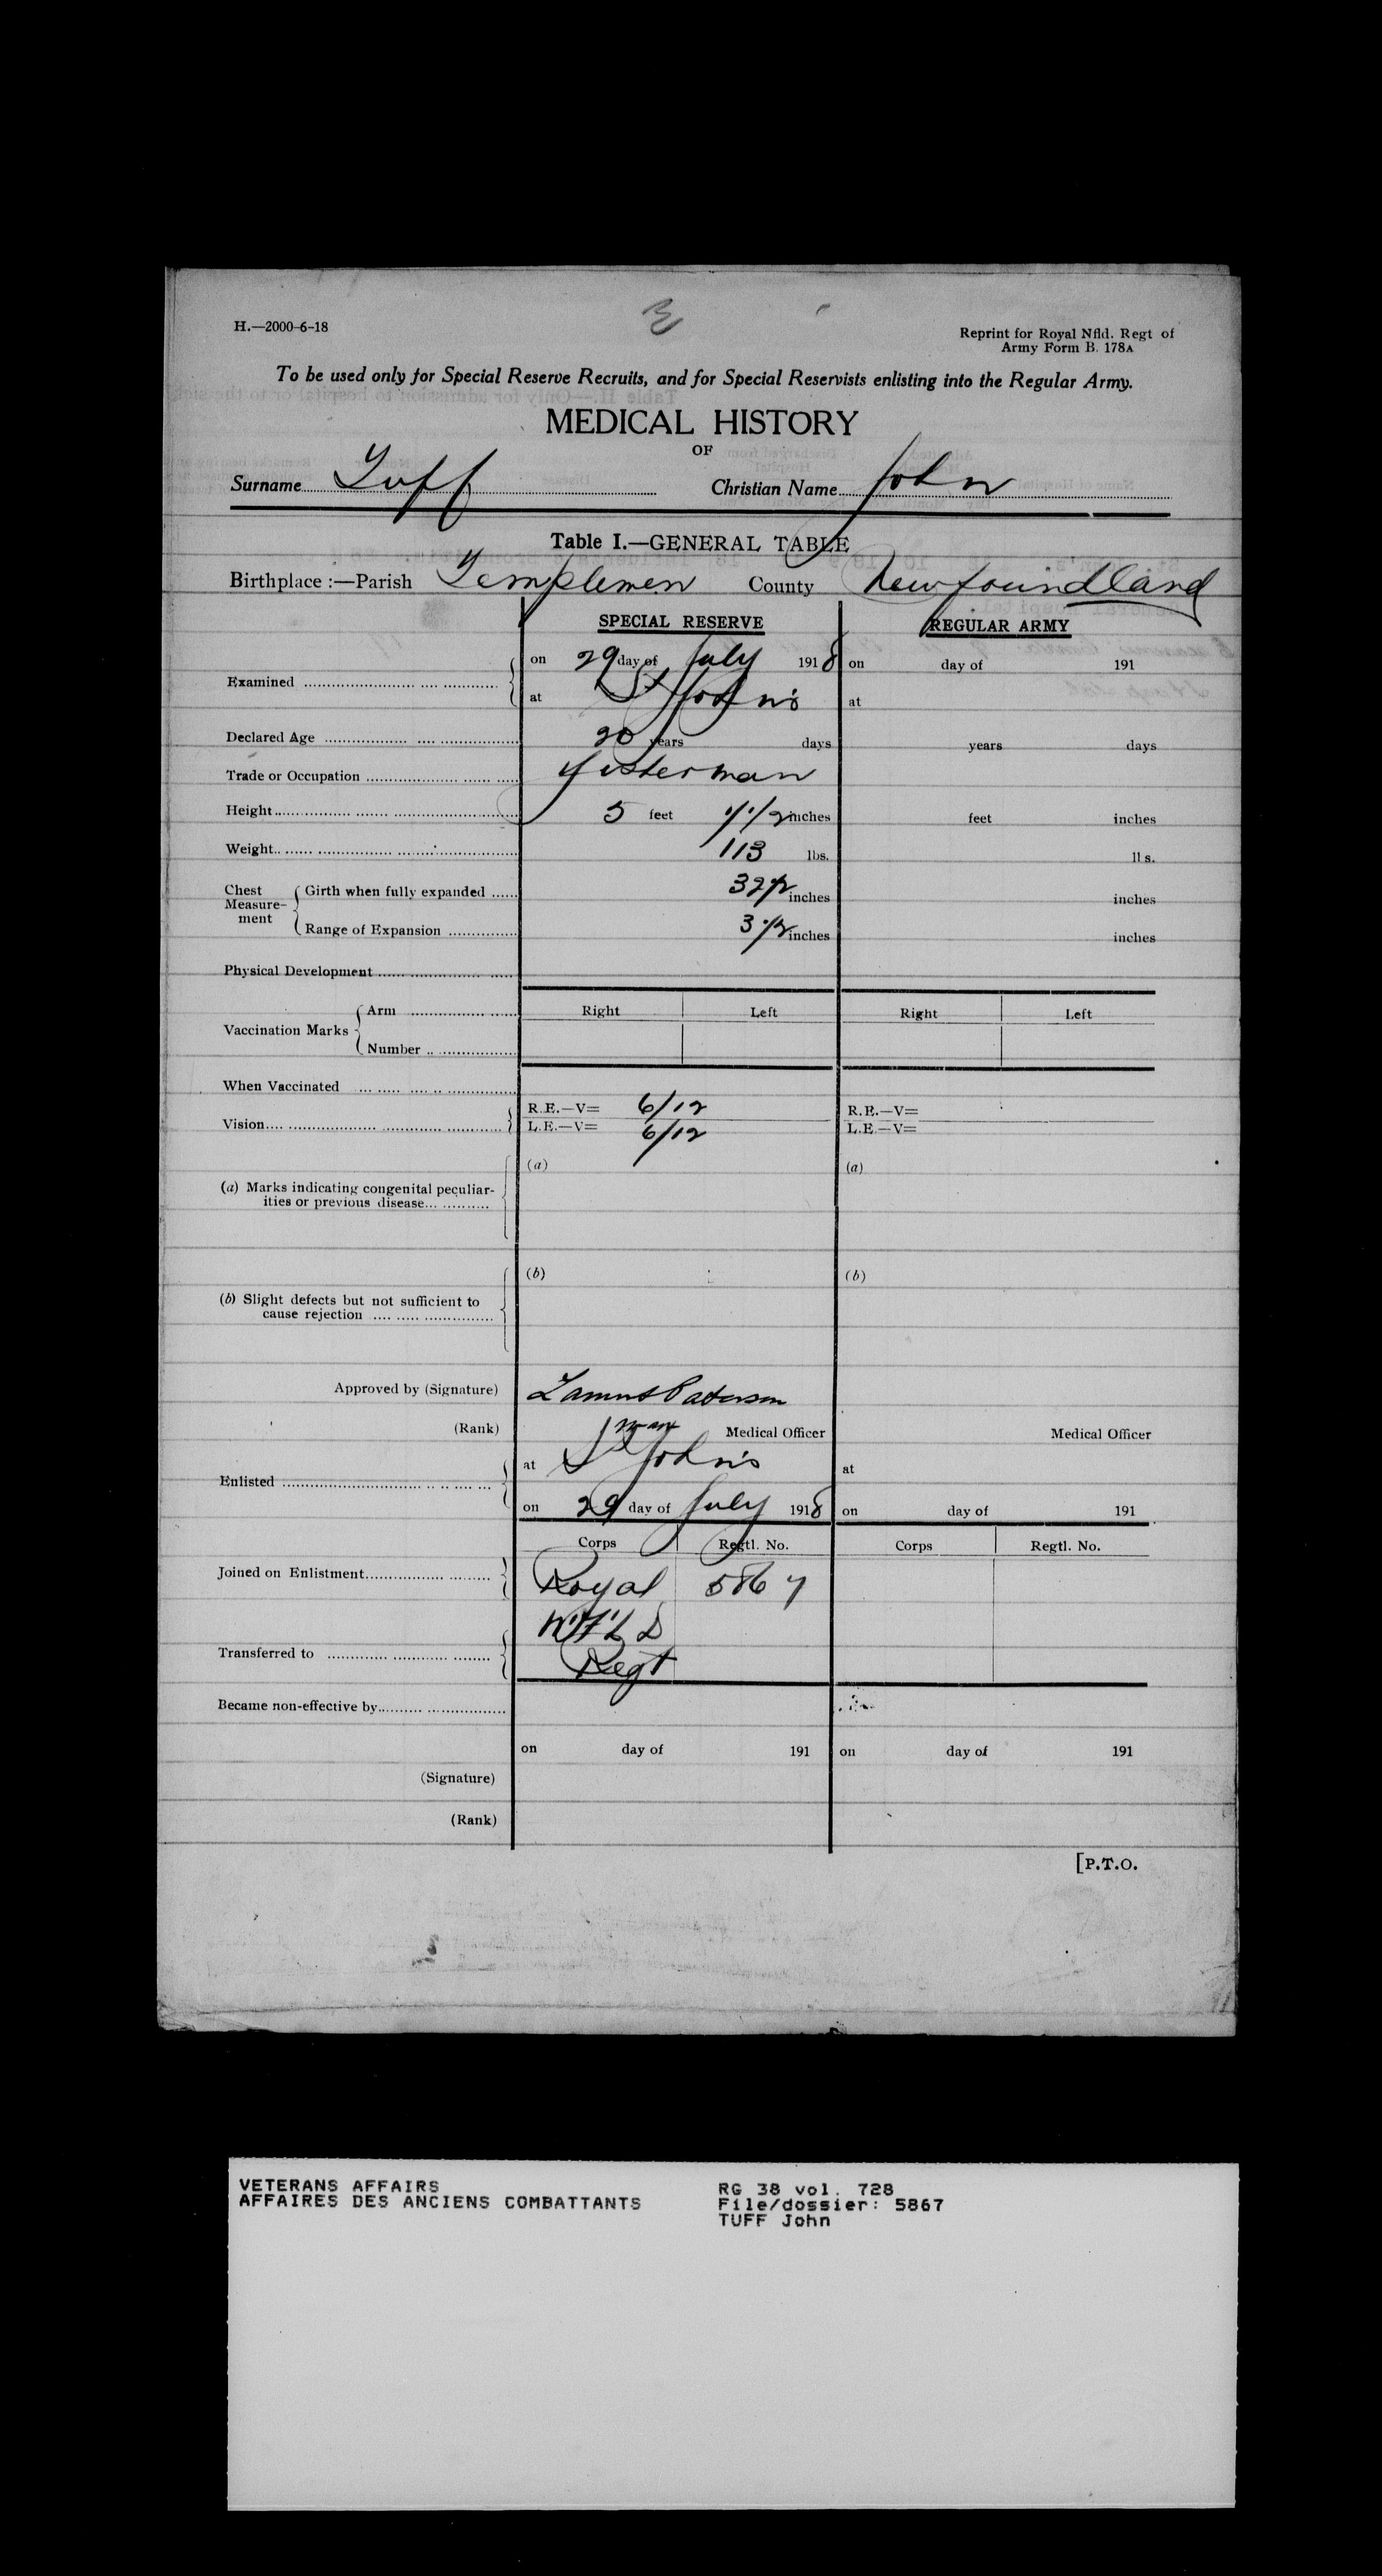 H.—2000-6-18
Reprint for Royal Nfld. Regt of
Army Form B. 178A
To be used only for Special Reserve Recruits, and for Special Reservists enlisting into the Regular Army.
MEDICAL HISTORY
OF
Surname Tuff Christian Name John
Table I.—GENERAL TABLE
Birthplace :—Parish Templemen County Newfoundland
SPECIAL RESERVE REGULAR ARMY
Examined on 29 day of July 1918 on day of 191
at St John's at
Declared Age 20 years days years days
Trade or Occupation Fisherman
Height 5 feet 1/2 inches feet inches
Weight 113 lbs. lbs.
Chest Measurement Girth when fully expanded 32 1/2 inches inches
Range of Expansion 3 1/2 inches inches
Physical Development
Vaccination Marks Arm Right Left Right Left
Number
When Vaccinated
Vision R.E.—V= 6/12 R.E.—V=
L.E.—V= 6/12 L.E.—V=
(a) Marks indicating congenital peculiar-
ities or previous disease (a) (a)
(b) Slight defects but not sufficient to
cause rejection (b) (b)
Approved by (Signature) Paterson
(Rank) Medical Officer Medical Officer
Enlisted at St John's at
on 29 day of July 1918 on day of 191
Corps Regtl. No. Corps Regtl. No.
Joined on Enlistment Royal 5867
N'F'L D
Transferred to Regt
Became non-effective by
on day of 191 on day of 191
(Signature)
(Rank)
[P.T.O.
VETERANS AFFAIRS RG 38 vol. 728
AFFAIRES DES ANCIENS COMBATTANTS File/dossier: 5867
TUFF John